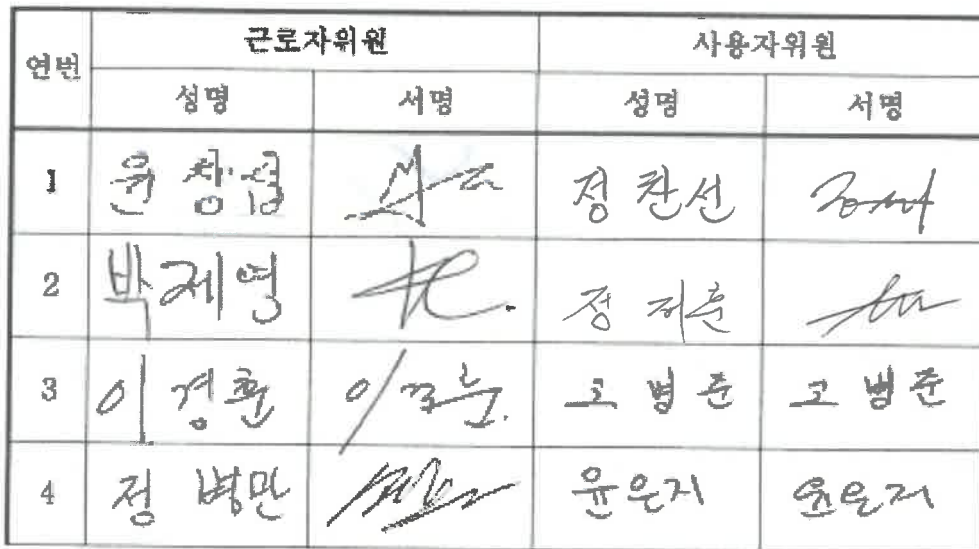 연번 근로자위원 사용자위원
성명 서명 성명 서명
1 윤창섭 정찬선
2 박제영 정재훈
3 이경훈 고병준 고병준
4 정병만 윤은지 윤은지